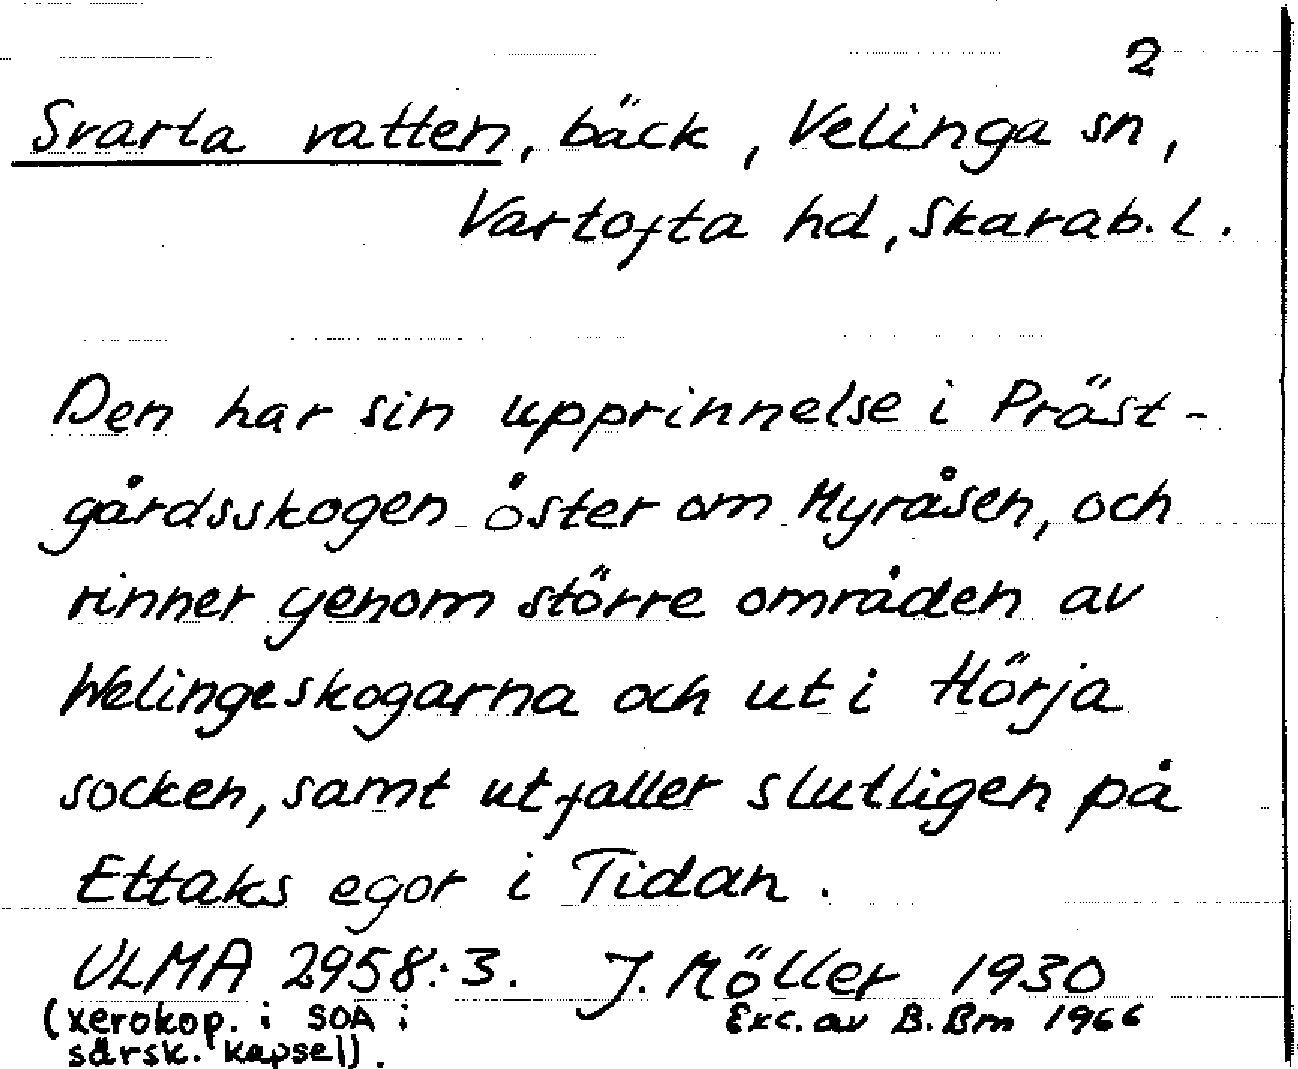 2
Svarta vatten, bäck, Velinga sn,
Vartofta hd, Skarab. l.
Den har sin upprinnelse i Präst-
gårdsskogen öster om Myråsen, och
rinner genom större områden av
Welingeskogarna och ut i Hörja
socken, samt utfaller slutligen på
Ettaks egor i Tidan.
ULMA 2958:3. J. Möller 1930
(xerokop. i SOA i Exc. av B. Bm 1966
särsk. kapsel).